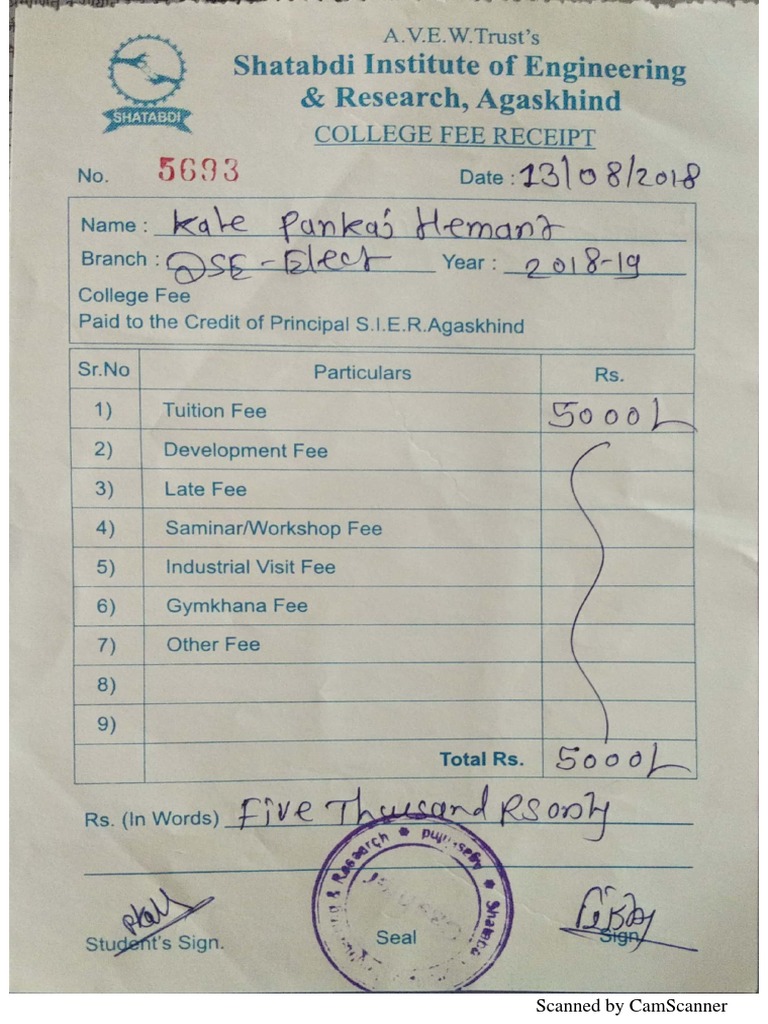 A.V.E.W.Trust's
Shatabdi Institute of Engineering
& Research, Agaskhind
SHATABDI
COLLEGE FEE RECEIPT
No. 5693 Date : 13/08/2018
Name : Kale Pankaj Hemant
Branch : DSE-Elect Year : 2018-19
College Fee
Paid to the Credit of Principal S.I.E.R.Agaskhind
Sr.No Particulars Rs.
1) Tuition Fee 5000/-
2) Development Fee
3) Late Fee
4) Saminar/Workshop Fee
5) Industrial Visit Fee
6) Gymkhana Fee
7) Other Fee
8)
9)
Total Rs. 5000/-
Rs. (In Words) Five Thousand RS only
& Research * * Shatabd
Student's Sign. Seal Sign
Scanned by CamScanner